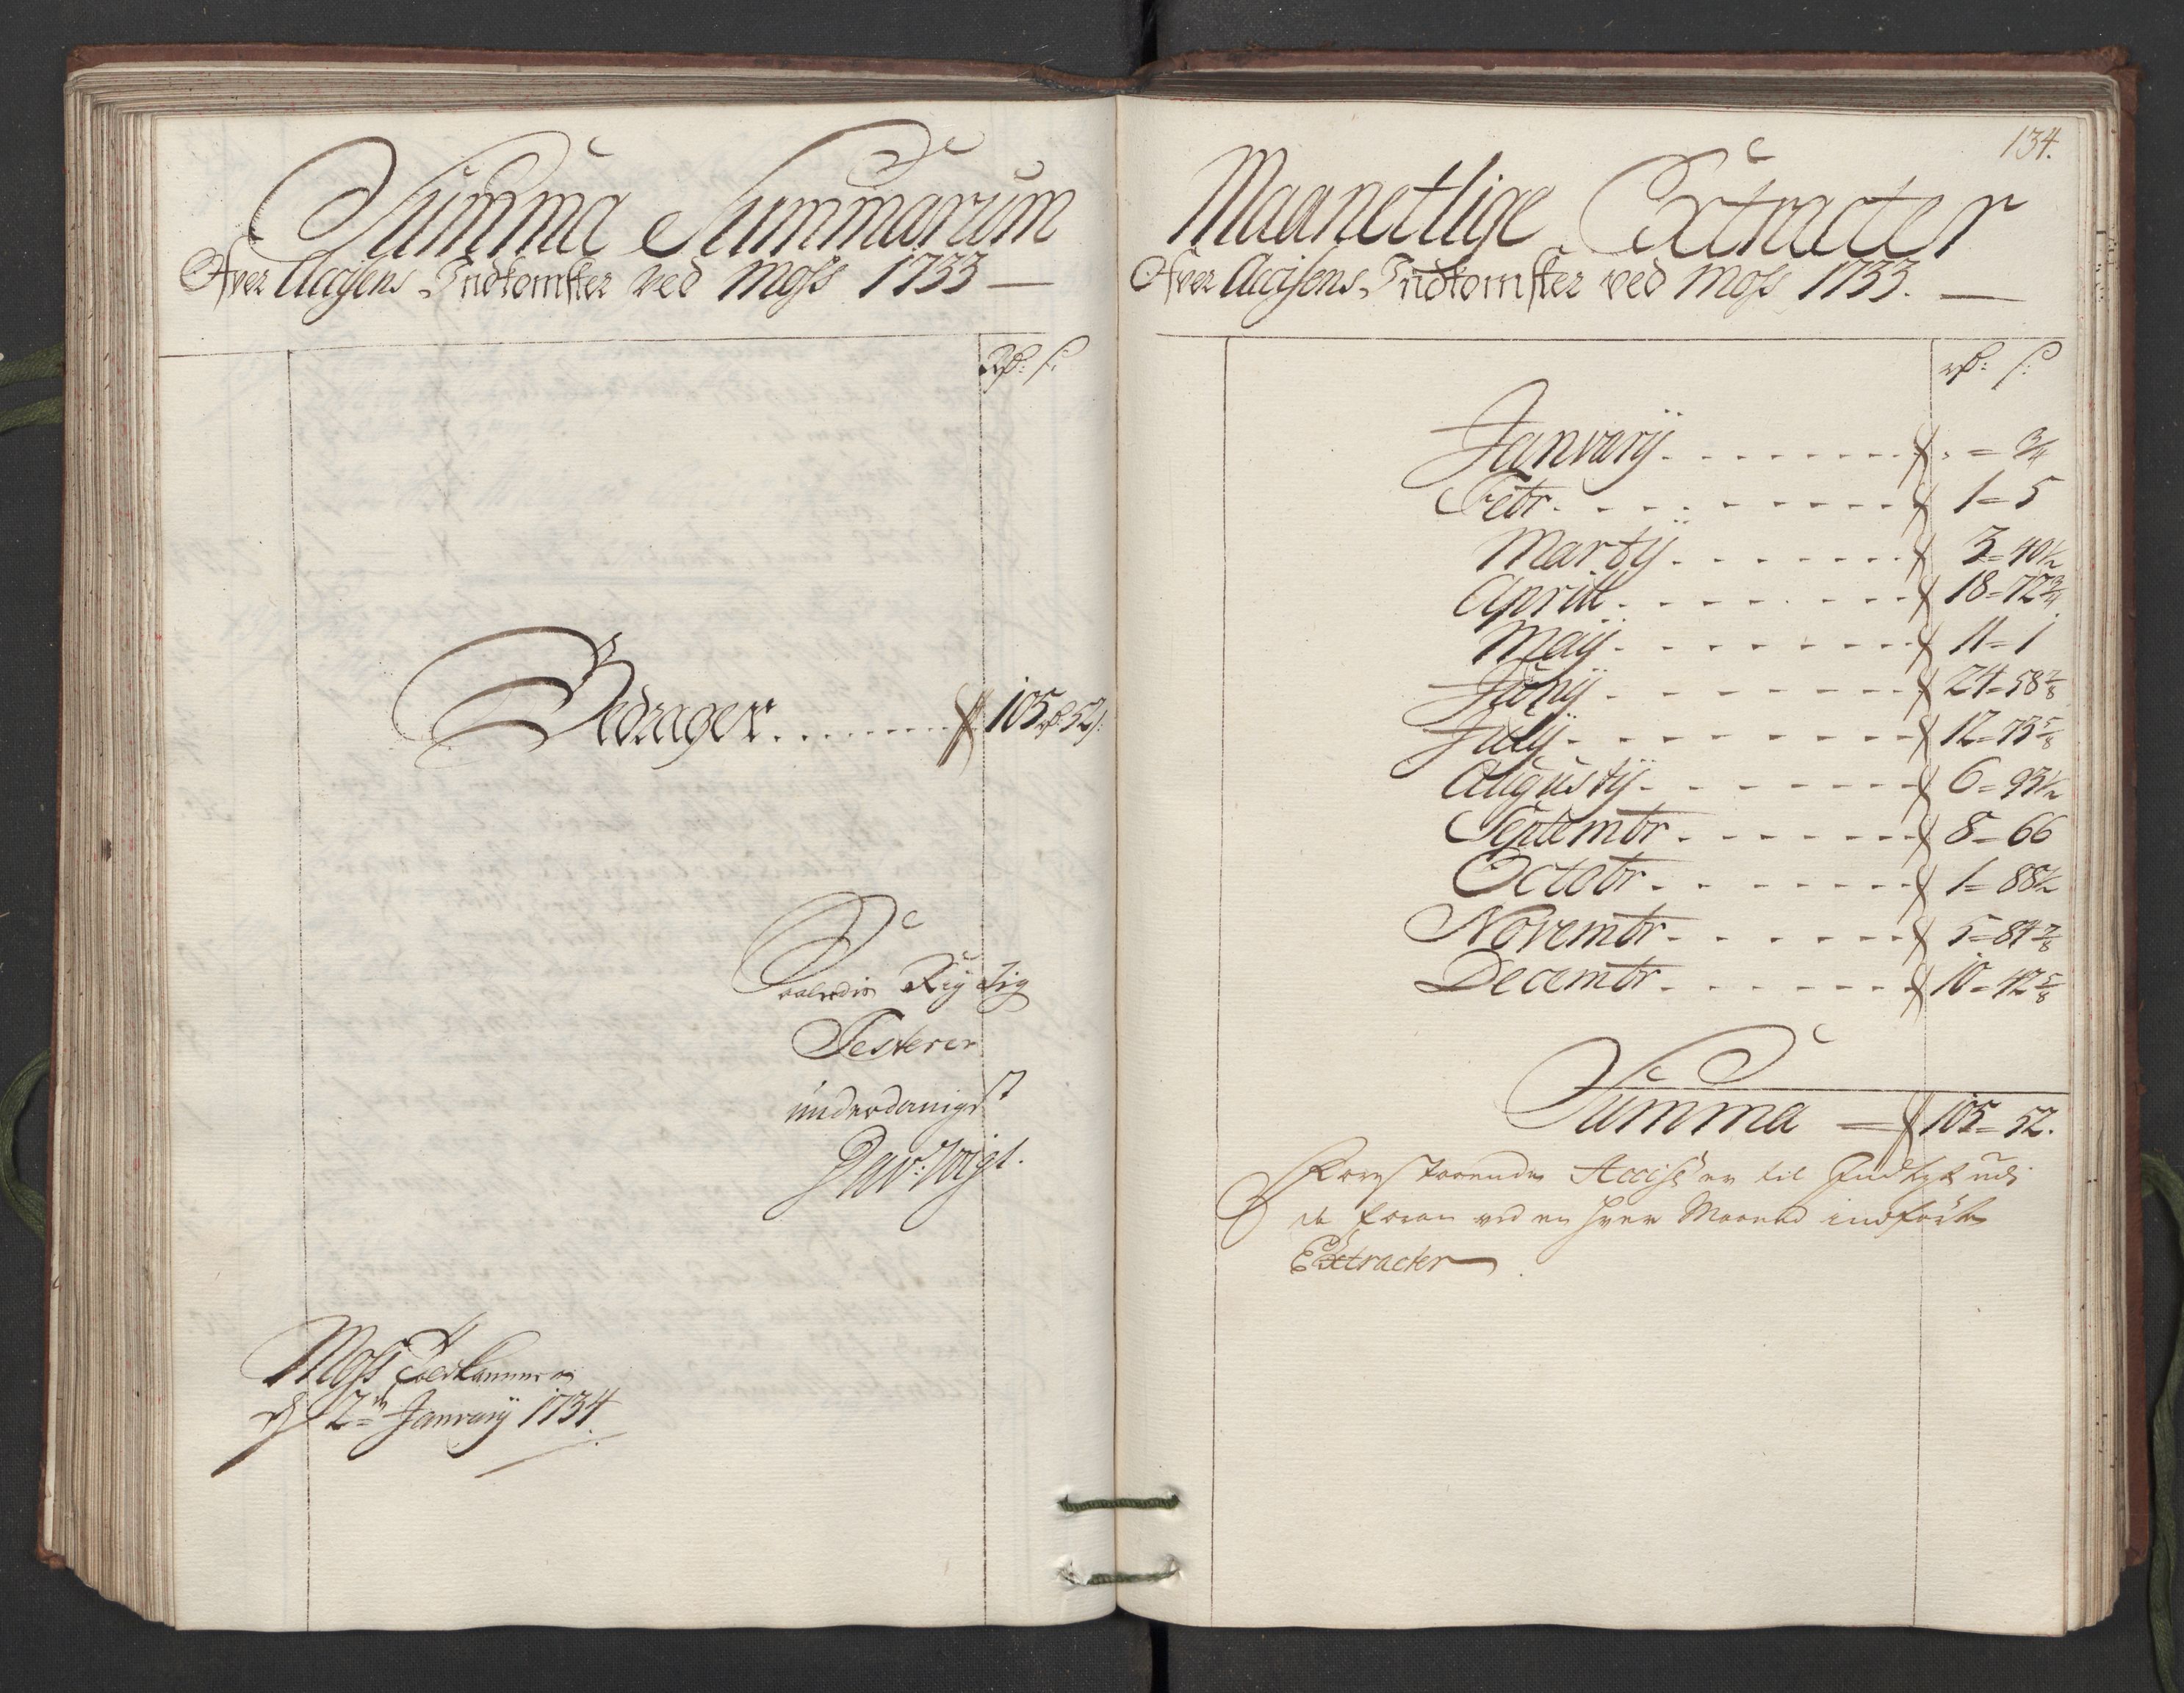 Summa Summarum
Ofver Accisens Indkomster ved Moss 1733 —
Rd: s:
Bedrager . . . . . . . . . 105 rd 52 s:
Saaledis Rigtig
Testerer
underdanigst
Dav: Voigt.
Moss Toldkammer
d 2n January 1734.
134.
Maanetlige Extracter
Ofver Accisens Indkomster ved Moss 1733. —
rd: s:
Janvarij . . . . . . . . . " = 3/4
Febr. . . . . . . . . . 1 = 5
Martij . . . . . . . . 3 = 40 1/2
Aprill . . . . . . . . 18 = 72 3/4
Maij . . . . . . . . 11 = 1
Junij . . . . . . . . 24 = 58 7/8
Julij . . . . . . . . . 12 = 73 5/8
Augustij . . . . . . . 6 = 93 1/2
Septembr . . . . . . . 8 = 66
Octobr . . . . . . . . 1 = 88 1/2
Novembr . . . . . . . 5 = 84 7/8
Decembr . . . . . . . 10 = 42 5/8
Summa = 105 = 52.
Forestaaende Accise er til Indtægt udi
de foran ved en hver Maaned indførte
Extracter